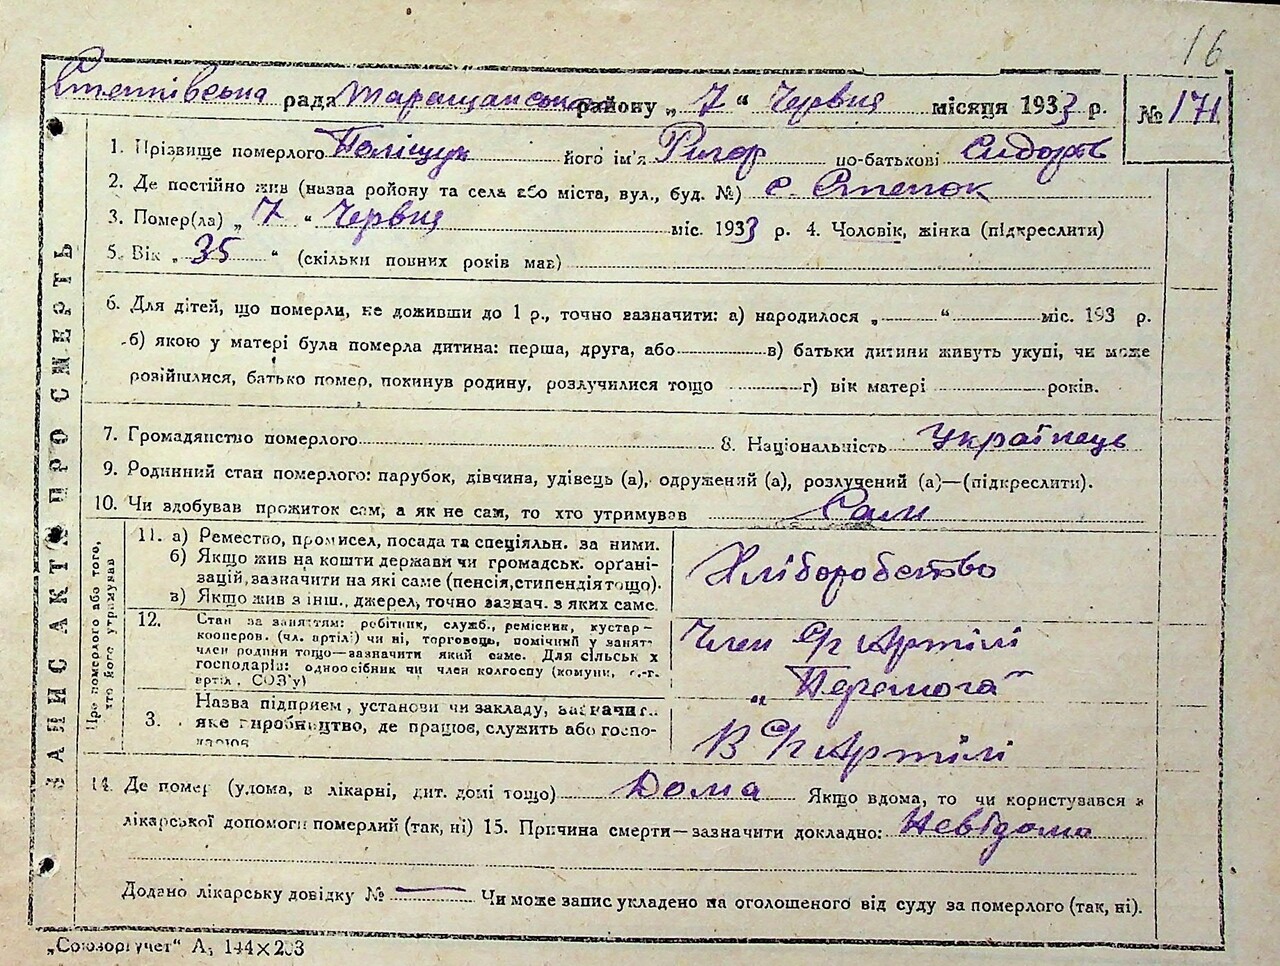 16
Степківська рада Таращанського району „ 7 “ Червня місяця 1933 р. № 171
1. Прізвище померлого Поліщук його ім'я Ригор по-батькові Сидорів
2. Де постійно жив (назва району та села або міста, вул., буд. №) с. Степок
3. Помер(ла) „ 7 “ Червня міс. 1933 р. 4. Чоловік, жінка (підкреслити)
5. Вік „ 35 “ (скільки повних років мав)
6. Для дітей, що померли, не доживши до 1 р., точно зазначити: а) народилося „ “ міс. 193 р.
б) якою у матері була померла дитина: перша, друга, або в) батьки дитини живуть укупі, чи може
розійшлися, батько помер, покинув родину, розлучилися тощо г) вік матері років.
7. Громадянство померлого 8. Національність Українець
9. Родинний стан померлого: парубок, дівчина, удівець (а), одружений (а), розлучений (а)—(підкреслити).
10. Чи здобував прожиток сам, а як не сам, то хто утримував Сам
ЗАПИС АКТ ПРО СМЕРТЬ
Про померлого або того, хто його утримував
11. а) Ремество, промисел, посада та спеціяльн. за ними.
б) Якщо жив на кошти держави чи громадськ. орґані-
зацій, зазначити на які саме (пенсія, стипендія тощо).
в) Якщо жив з інш., джерел, точно зазнач. з яких саме.
Хліборобство
12. Стан за заняттям: робітник, служб., ремісник, кустар-
кооперов. (чл. артілі) чи ні, торговець, помічний у занят.
член родини тощо—зазначити який саме. Для сільськ х
господарів: одноосібник чи член колгоспу (комуни, с.-г.
артіл, СОЗ'у)
Член С/г Артілі
„Перемога“
3. Назва підприєм, установи чи закладу, зазначит.
яке виробництво, де працює, служить або госпо-
дарює
В С/г Артілі
14. Де помер (удома, в лікарні, дит. домі тощо) Дома Якщо вдома, то чи користувався з
лікарської допомоги померлий (так, ні) 15. Причина смерти—зазначити докладно: Невідома
Додано лікарську довідку № — Чи може запис укладено на оголошеного від суду за померлого (так, ні).
„Союзоргучет“ А5 144×203